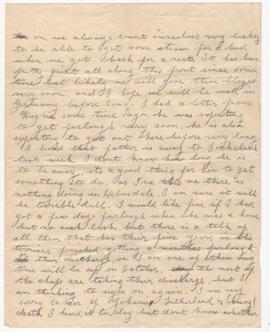 on we always count ourselves very lucky
to be able to get some straw for a bed
when we get back for a rest. It has been
pretty quiet all along this front since some
time but likely we will give them blazes
very soon, and I hope we will be well in
Germany before long. I had a letter from
Hughie some time ago he was expecting
to get furlough very soon, he is also
expecting to get out There before very long.
I heard that father is away to
last week I dont know how long he is
to be away, its a good thing for him to get
something to do, as I am told me there is
nothing doing in Helmsdale. I am sure it will
be terrible dull. I would like fine if I had
got a few days furlough when she was a home
but no such luck, but there is a talk of
all them that has their five years in the
Terriers finished getting a months furlough
their discharge, so I'm one of them
time will be up in October. the most of
the chaps are taking their discharge but I
am thinking to sign on again. I was very
sorry to hear of Sutherland's
death I heard it to day but dont know whether